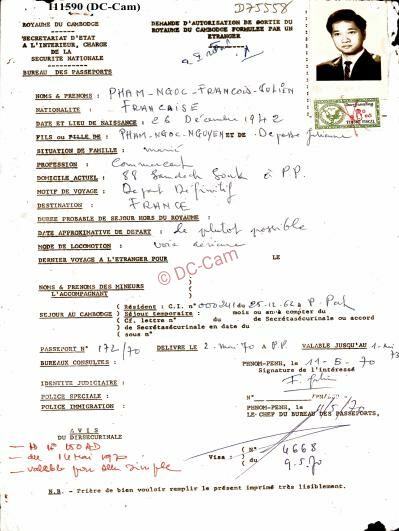 I1590 (DC-Cam)
D75558
ROYAUME DU CAMBODGE
SECRETARIAT D'ETAT
A L'INTERIEUR, CHARGE
DE LA
SECURITE NATIONALE
BUREAU DES PASSEPORTS
DEMANDE D'AUTORISATION DE SORTIE DU
ROYAUME DU CAMBODGE FORMULEE PAR UN
ETRANGER
NOMS & PRENOMS : PHAM-NGOC-FRANCOIS-JULIEN
NATIONALITE : FRANCAISE
DATE ET LIEU DE NAISSANCE : 26 Décembre 1942
FILS ou FILLE DE : PHAM-NGOC-NGUYEN ET DE
SITUATION DE FAMILLE : marié
PROFESSION : Commerçant
DOMICILE ACTUEL : 88 à P.P.
MOTIF DE VOYAGE : Départ Définitif
DESTINATION : FRANCE
DUREE PROBABLE DE SEJOUR HORS DU ROYAUME :
DATE APPROXIMATIVE DE DEPART : le plutôt possible
MODE DE LOCOMOTION : voie aérienne
DERNIER VOYAGE A L'ETRANGER POUR LE
© DC-Cam
NOMS & PRENOMS DES MINEURS
L'ACCOMPAGNANT
SEJOUR AU CAMBODGE
( Résident : C.I. n° du 25-12-62 à P. Penh
( Séjour temporaire : mois ou an à compter du
( Cf. lettre n° du de Secrétasécurale ou accord
( de Secrétasécurale en date du
( sous n°
PASSEPORT N° 172/70 DELIVRE LE 2 mai 70 à P.P VALABLE JUSQU'AU
BUREAUX CONSULTES : PHNOM-PENH, le 11-5-70
Signature de l'intéressé
IDENTITE JUDICIAIRE :
POLICE SPECIALE :
POLICE IMMIGRATION :
N°
PHNOM-PENH, le 11/5/70
LE CHEF DU BUREAU DES PASSEPORTS,
AVIS
DU DIRSECURINALE
du 14 Mai 1970
Visa : ( N° 4668
( du 9.5.70
N.B - Prière de bien vouloir remplir le présent imprimé très lisiblement.